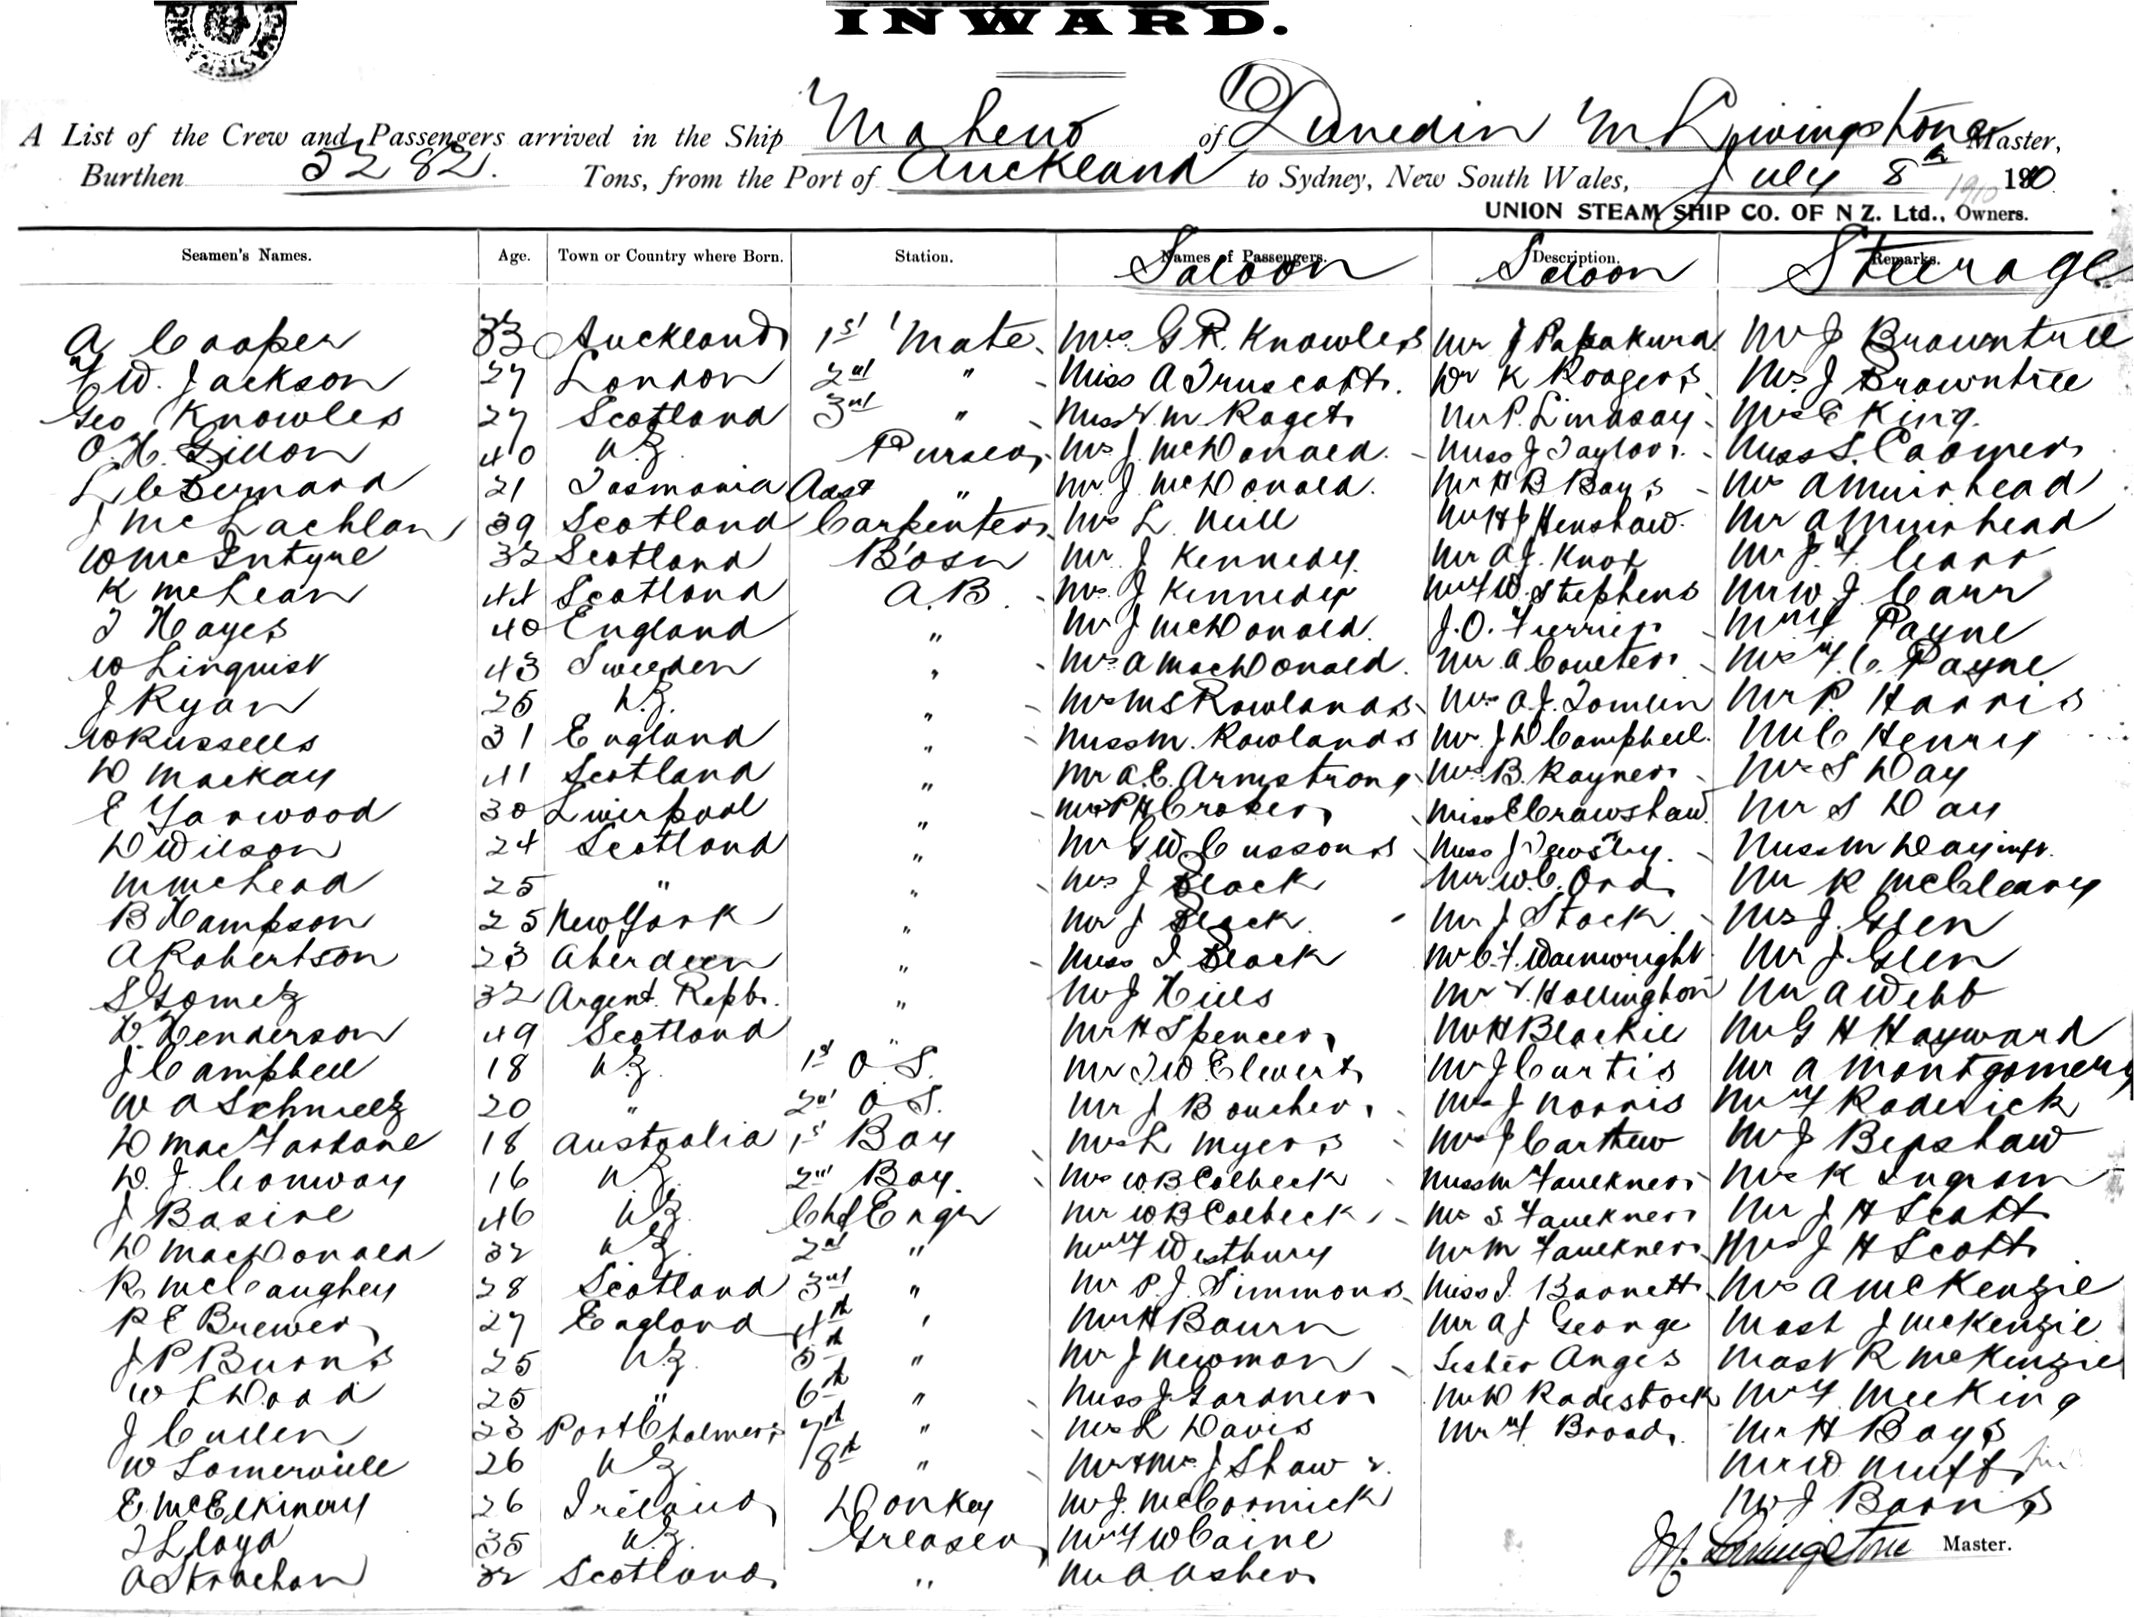 INWARD.
A List of the Crew and Passengers arrived in the Ship Maheno of Dunedin M. Livingstone Master,
Burthen 5282. Tons, from the Port of Auckland to Sydney, New South Wales, July 8th 1910
UNION STEAM SHIP CO. OF N Z. Ltd., Owners.
Seamen's Names. Age. Town or Country where Born. Station. Names of Passengers. Description. Remarks.
Saloon Saloon Steerage
A Cooper 33 Auckland 1st Mate Mrs G R. Knowles Mr J Papakura Mr J Browntree
W. Jackson 27 London 2nd " Miss A Truscott. Dr K Rodgers Mrs J Browntree
Geo Knowles 27 Scotland 3rd " Miss V. M. Roget Mr P. Lindsay Mrs C King.
O. H. Dillon 40 N.Z. Purser Mrs J. McDonald. Miss J Taylor. Miss S. Coomer
L C Bernard 21 Tasmania Asst " Mr. J. McDonald. Mr H B Bays Mrs A Muirhead
J McLachlan 39 Scotland Carpenter Mrs L. Neill Mr H C Henshaw. Mr A Muirhead
W McIntyre 32 Scotland Bosn Mr. J Kennedy Mr A J. Knox Mr J. F. Carr
K McLean 44 Scotland A.B. Mrs. J Kennedy Mr F W. Stephens Mr W J Carr
T Hayes 40 England " Mr J McDonald. J. O. Ferrier Mr F Payne
W Linquist 43 Sweden " Mrs A MacDonald. Mr A Coulter Mrs F. C. Payne
J Ryan 25 N.Z. " Mrs M S Rowlands Mrs A. J. Tomlin Mr P. Harris
W Russells 31 England " Miss M. Rowlands Mr. J D Campbell. Mr C Henry
D Mackay 41 Scotland " Mr A. E. Armstrong Mrs B. Rayner Mrs S Day
E Yarwood 30 Liverpool " Mr P H Croker Miss E Crawshaw Mr S Day
D Wilson 24 Scotland " Mr G W Cussons Miss J Dewsbury. Miss M Day inft.
M McLeod 25 " " Mrs J Black Mr W. C. Ord Mr R McCleary
B Hampson 25 New York " Mr J Black Mr J Stock Mrs J. Glen
A Robertson 23 Aberdeen " Miss I Black Mr C. F. Wainwright Mr J. Glen
S Gomez 32 Argent. Repb. " Mr J Hills Mr V. Hollington Mr A Webb
D. Henderson 49 Scotland " Mr H Spencer Mr H Blackie Mr G H Hayward
J Campbell 18 N.Z. 1st O S. Mr T. W. Elevert Mr J Curtis Mr A Montgomery
W A Schmelz 20 " 2nd O S. Mr J Boucher Mrs J Norris Mr F Roderick
D MacFarlane 18 Australia 1st Boy Mrs L Myers Mrs J Carthew Mr J Bepshaw
D. J. Conway 16 N.Z. 2nd Boy. Mrs W B Colbeck Miss M Faulkner Mrs K Ingram
J Basire 46 N.Z. Chf Engr Mr W B Colbeck Mrs S. Faulkner Mr J H Scott
D MacDonald 32 N.Z. 2nd " Mr F Westbury Mr M Faulkner Mrs J H Scott
R McCaughey 28 Scotland 3rd " Mr P. J. Simmons Miss I. Barnett Mrs A McKenzie
R E Brewer 27 England 4th " Mr H Bourn Mr A J George Mast J McKenzie
J P Burns 25 N.Z. 5th " Mr J Newman Sester Anges Mast R McKenzie
W L Wood 25 " 6th " Miss J. Gardner Mr W Radestock Mr F Meeking
J Cullen 23 Port Chalmers 7th " Mrs L Davis Mr F Broad. Mr H Bays
W Somerville 26 N Z 8th " Mr & Mrs J Shaw 2. Mr W Muff
E. McElkinny 26 Ireland Donkey Mr J. McCormick Mr J Barns
T Lloyd 35 N.Z. Greaser Mr F W Caine
M. Livingstone Master.
A Strachan 32 Scotland " Mr A. Asher